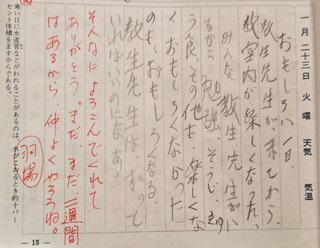 一月二十三日 火曜 天気 気温
おもしろい一日
教生先生が来てから、
教室内が楽しくなった。
みんな教生先生がい
るから、勉強、そうじ、きゅ
う食、その他も、楽しくな
くおもしろくなかった
のも、おもしろくなる。
教生先生はずっと
いればいいのになあ。
そんなによろこんでくれて
ありがとう。まだ、まだ二週間
はあるから、仲よくやろうね。
羽場
寒い日に水道管などがわれることがあるのは、水がこおるとき約十パー
セント体積をますからである。
— 15 —